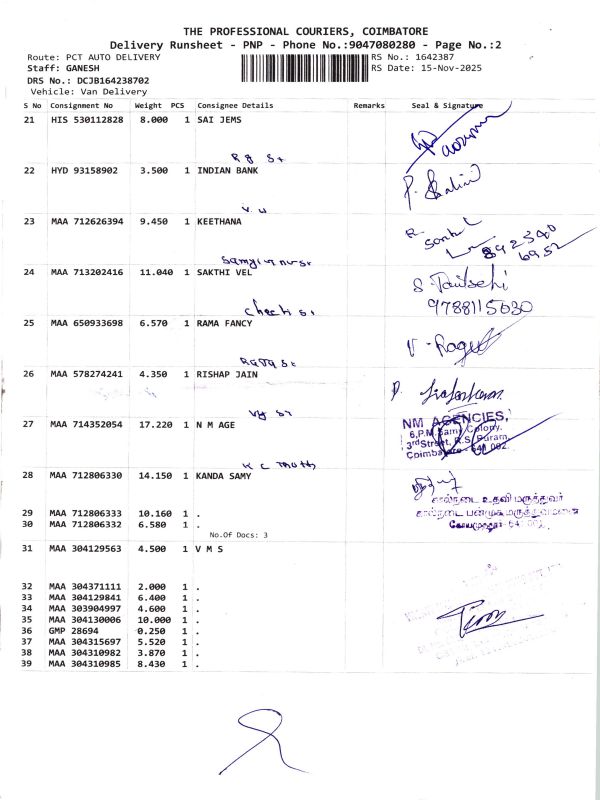 THE PROFESSIONAL COURIERS, COIMBATORE
Delivery Runsheet - PNP - Phone No.:9047080280 - Page No.:2
Route: PCT AUTO DELIVERY RS No.: 1642387
Staff: GANESH RS Date: 15-Nov-2025
DRS No.: DCJB164238702
Vehicle: Van Delivery
S No Consignment No Weight PCS Consignee Details Remarks Seal & Signature
21 HIS 530112828 8.000 1 SAI JEMS
22 HYD 93158902 3.500 1 INDIAN BANK
23 MAA 712626394 9.450 1 KEETHANA
24 MAA 713202416 11.040 1 SAKTHI VEL
9788115630
25 MAA 650933698 6.570 1 RAMA FANCY
26 MAA 578274241 4.350 1 RISHAP JAIN
27 MAA 714352054 17.220 1 N M AGE
NM AGENCIES,
6,P.M.Samy Colony,
3rd Street, R.S. Puram,
Coimbatore - 641 002.
28 MAA 712806330 14.150 1 KANDA SAMY
கால்நடை உதவி மருத்துவர்
கால்நடை பன்முக மருத்துவமனை
29 MAA 712806333 10.160 1 .
30 MAA 712806332 6.580 1 .
No.Of Docs: 3
31 MAA 304129563 4.500 1 V M S
32 MAA 304371111 2.000 1 .
33 MAA 304129841 6.400 1 .
34 MAA 303904997 4.600 1 .
35 MAA 304130006 10.000 1 .
36 GMP 28694 0.250 1 .
37 MAA 304315697 5.520 1 .
38 MAA 304310982 3.870 1 .
39 MAA 304310985 8.430 1 .